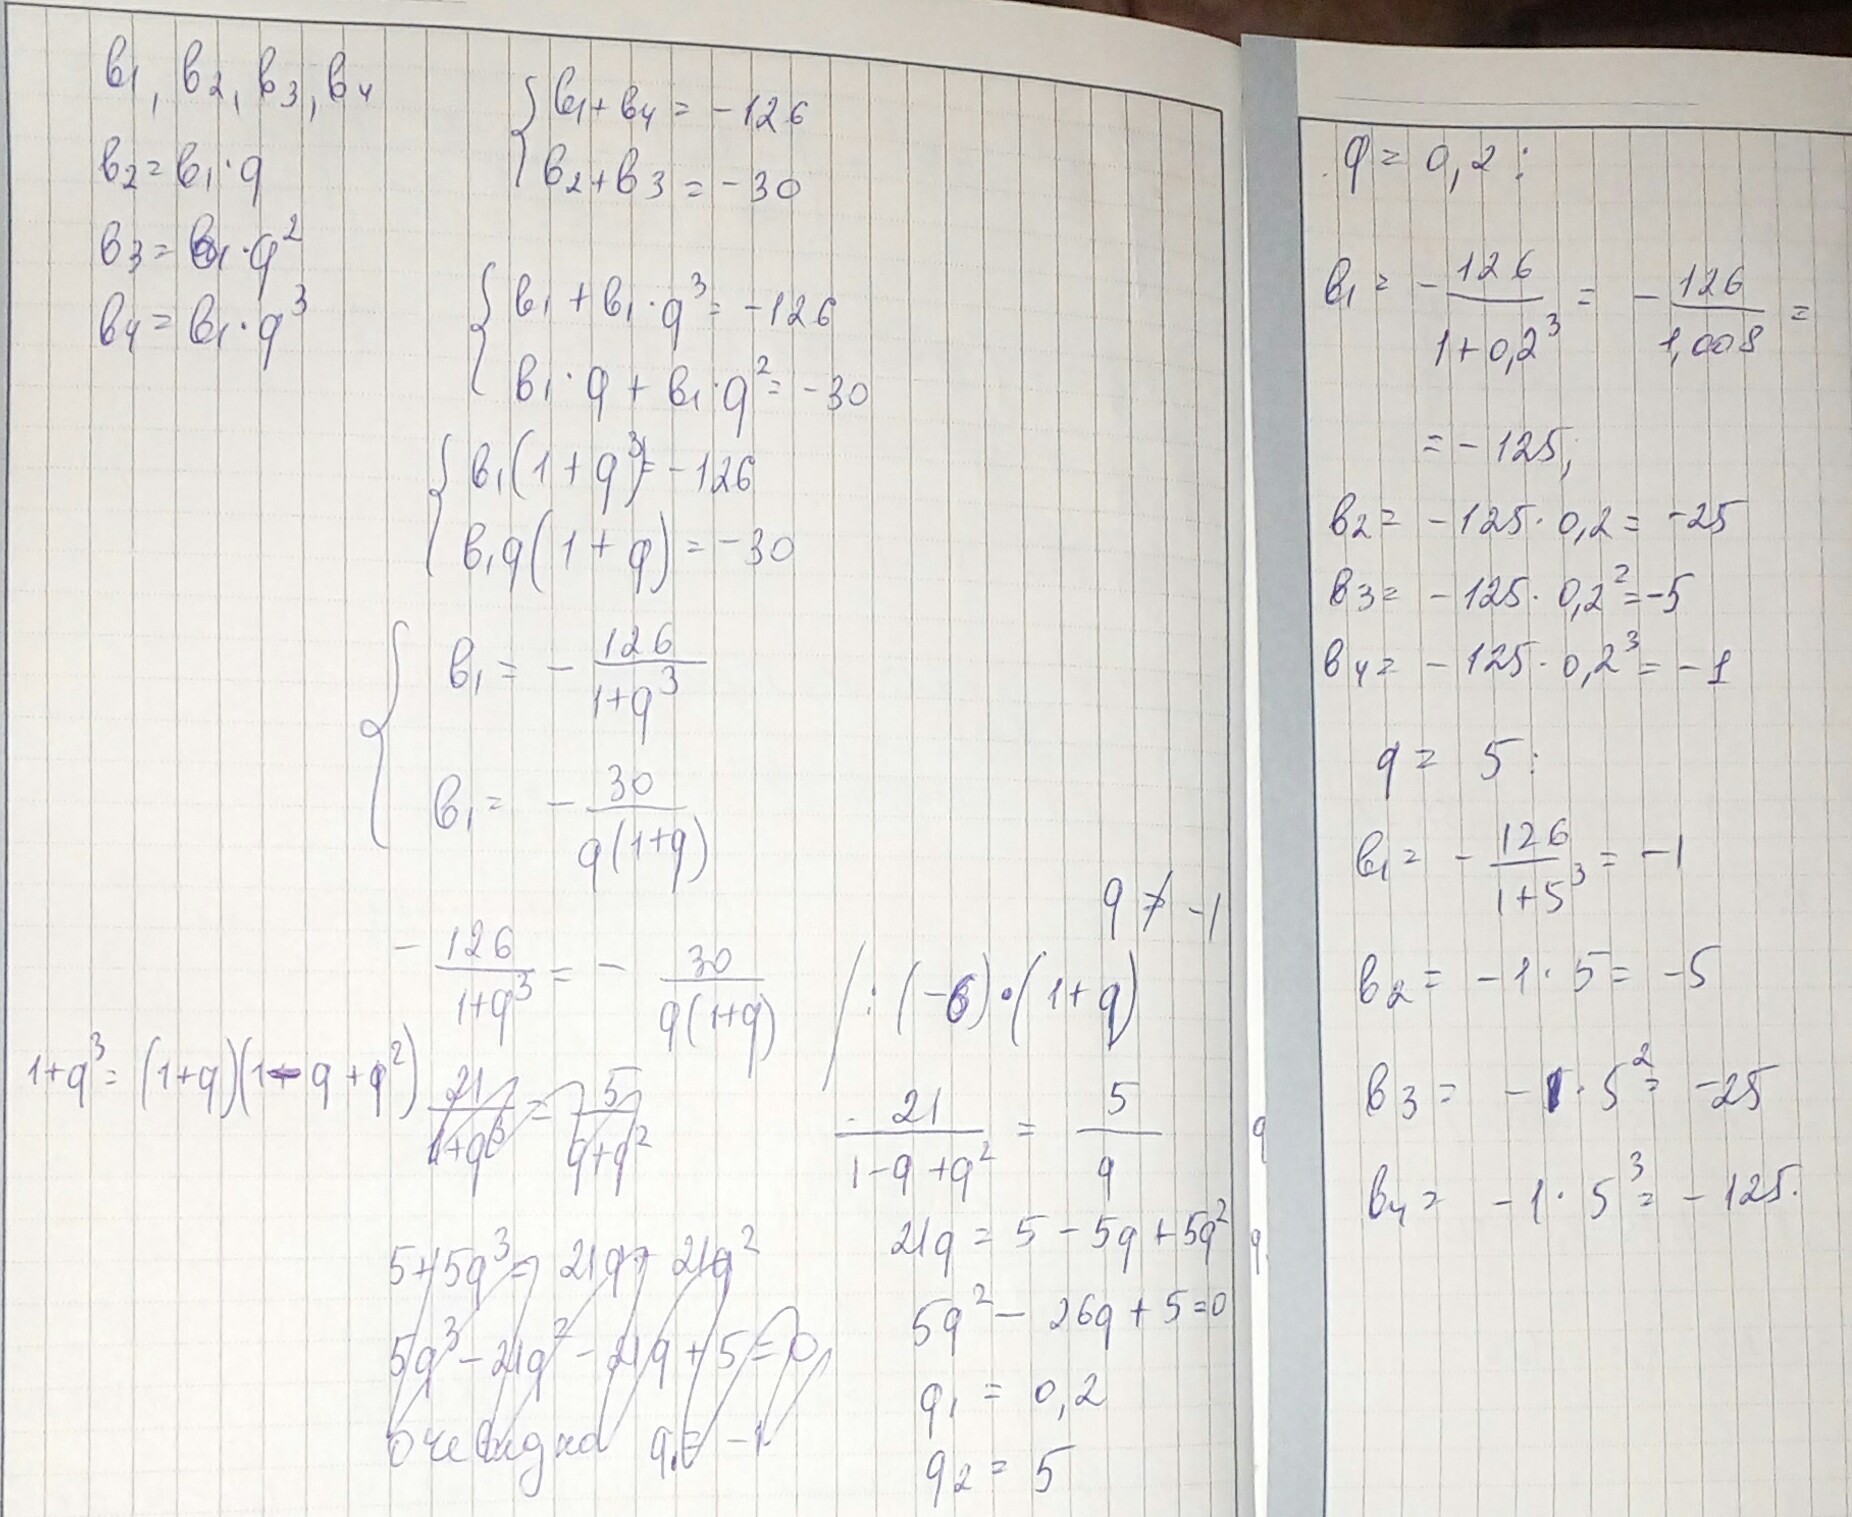 в₁, в₂, в₃, в₄
в₂ = в₁·q
в₃ = в₁·q²
в₄ = в₁·q³
{ в₁ + в₄ = -126
в₂ + в₃ = -30
{ в₁ + в₁·q³ = -126
в₁·q + в₁·q² = -30
{ в₁(1 + q³) = -126
в₁q(1 + q) = -30
{ в₁ = - 126/(1+q³)
в₁ = - 30/(q(1+q))
q ≠ -1
- 126/(1+q³) = - 30/(q(1+q)) / : (-6)·(1+q)
1+q³ = (1+q)(1-q+q²)
21/(1+q³) = 5/(q+q²)
5+5q³ = 21q + 21q²
5q³ - 21q² - 21q + 5 = 0
очевидно q₁ = -1
21/(1-q+q²) = 5/q
21q = 5 - 5q + 5q²
5q² - 26q + 5 = 0
q₁ = 0,2
q₂ = 5
q
q
q = 0,2:
в₁ = - 126/(1+0,2³) = - 126/1,008 =
= -125;
в₂ = -125·0,2 = -25
в₃ = -125·0,2² = -5
в₄ = -125·0,2³ = -1
q = 5:
в₁ = - 126/(1+5³) = -1
в₂ = -1·5 = -5
в₃ = -1·5² = -25
в₄ = -1·5³ = -125.